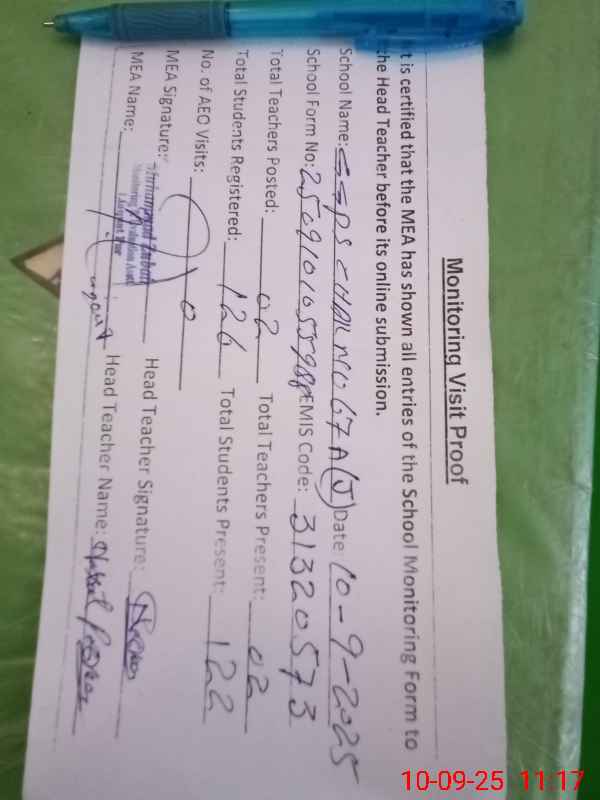 Monitoring Visit Proof
t is certified that the MEA has shown all entries of the School Monitoring Form to
the Head Teacher before its online submission.
School Name: GGPS CHAK NO 67 A (J) Date: 10-9-2025
School Form No: EMIS Code: 31320573
Total Teachers Posted: 02 Total Teachers Present: 02
Total Students Registered: 126 Total Students Present: 122
No. of AEO Visits: 0
MEA Signature: Head Teacher Signature:
MEA Name: Head Teacher Name:
10-09-25 11:17